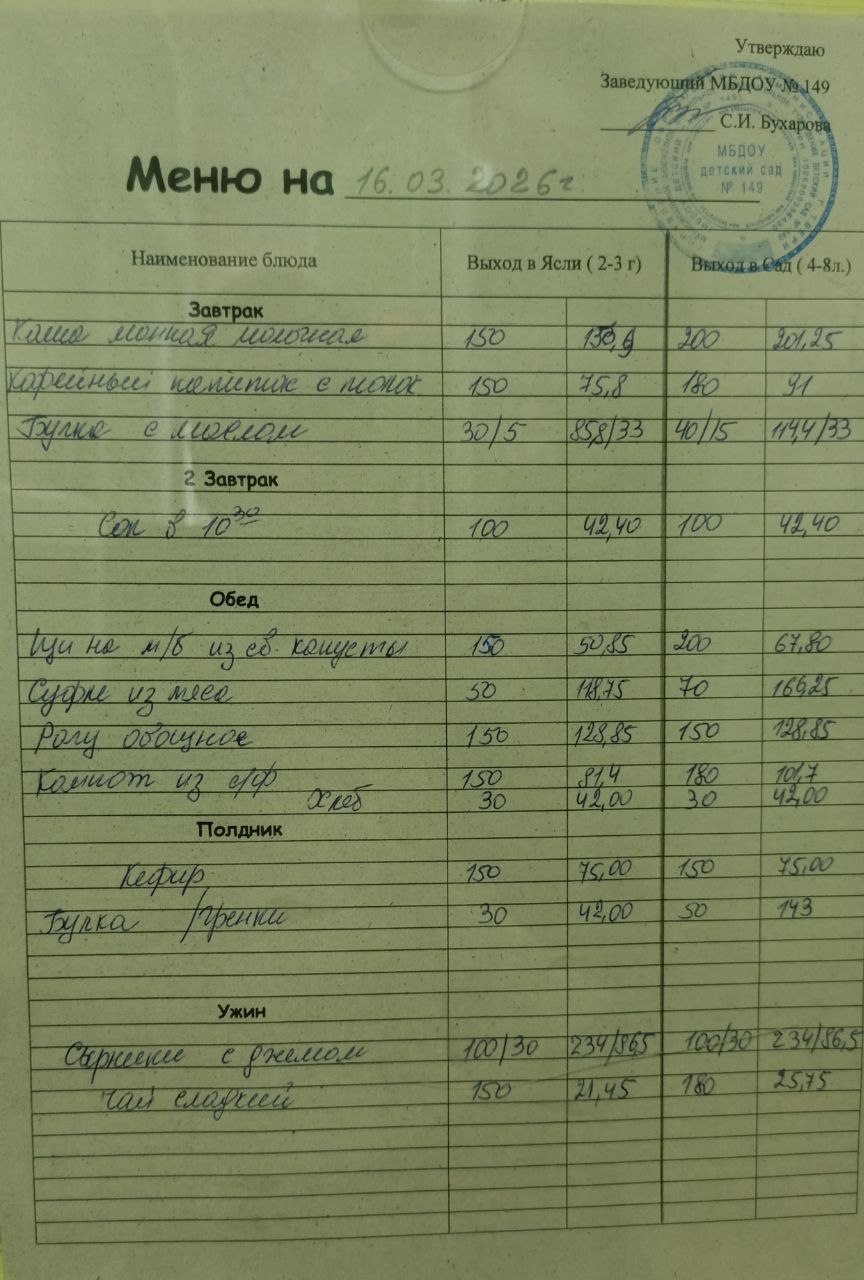 Утверждаю
Заведующий МБДОУ № 149
С.И. Бухарова
МБДОУ
детский сад
№ 149
Меню на 16.03.2026г
Наименование блюда Выход в Ясли ( 2-3 г) Выход в Сад ( 4-8л.)
Завтрак
Каша манная молочная 150 200 201,25
Кофейный напиток с молок 150 75,8 180 91
Булка с маслом 30/5 85,8/33 40/15 114,4/33
2 Завтрак
Сок в 10 30 100 42,40 100 42,40
Обед
Щи на м/б из св. капусты 150 50,85 200 67,80
Суфле из мяса 50 118,75 70 166,25
Рагу овощное 150 128,85 150 128,85
Компот из с/ф 150 81,4 180 101,7
Хлеб 30 42,00 30 42,00
Полдник
Кефир 150 75,00 150 75,00
Булка /гренки 30 42,00 50 143
Ужин
Сырники с джемом 100/30 234/86,5 100/30 234/86,5
Чай сладкий 150 21,45 180 25,75